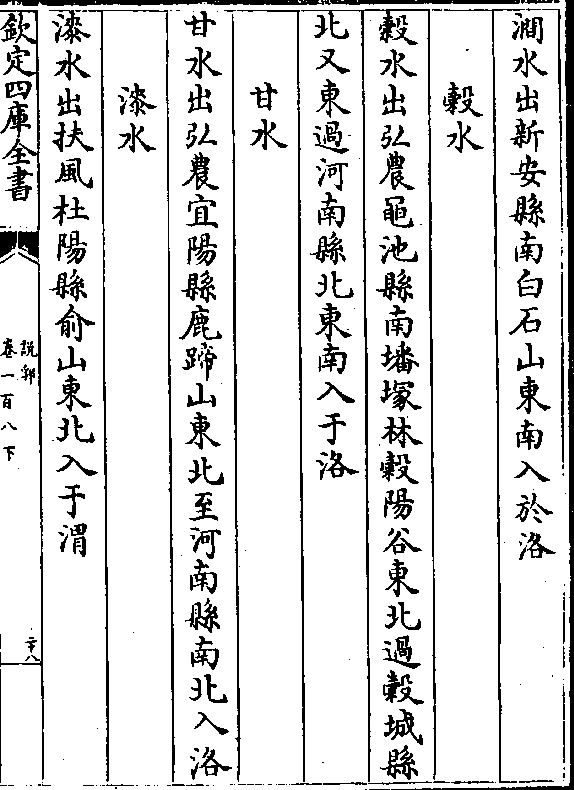 澗水出新安縣南白石山東南入於洛
穀水
穀水出弘農黽池縣南墦塚林穀陽谷東北過穀城縣
北又東過河南縣北東南入于洛
甘水
甘水出弘農宜陽縣鹿蹄山東北至河南縣南北入洛
漆水
漆水出扶風杜陽縣俞山東北入于渭
欽定四庫全書
說郛
卷一百八下
二十八